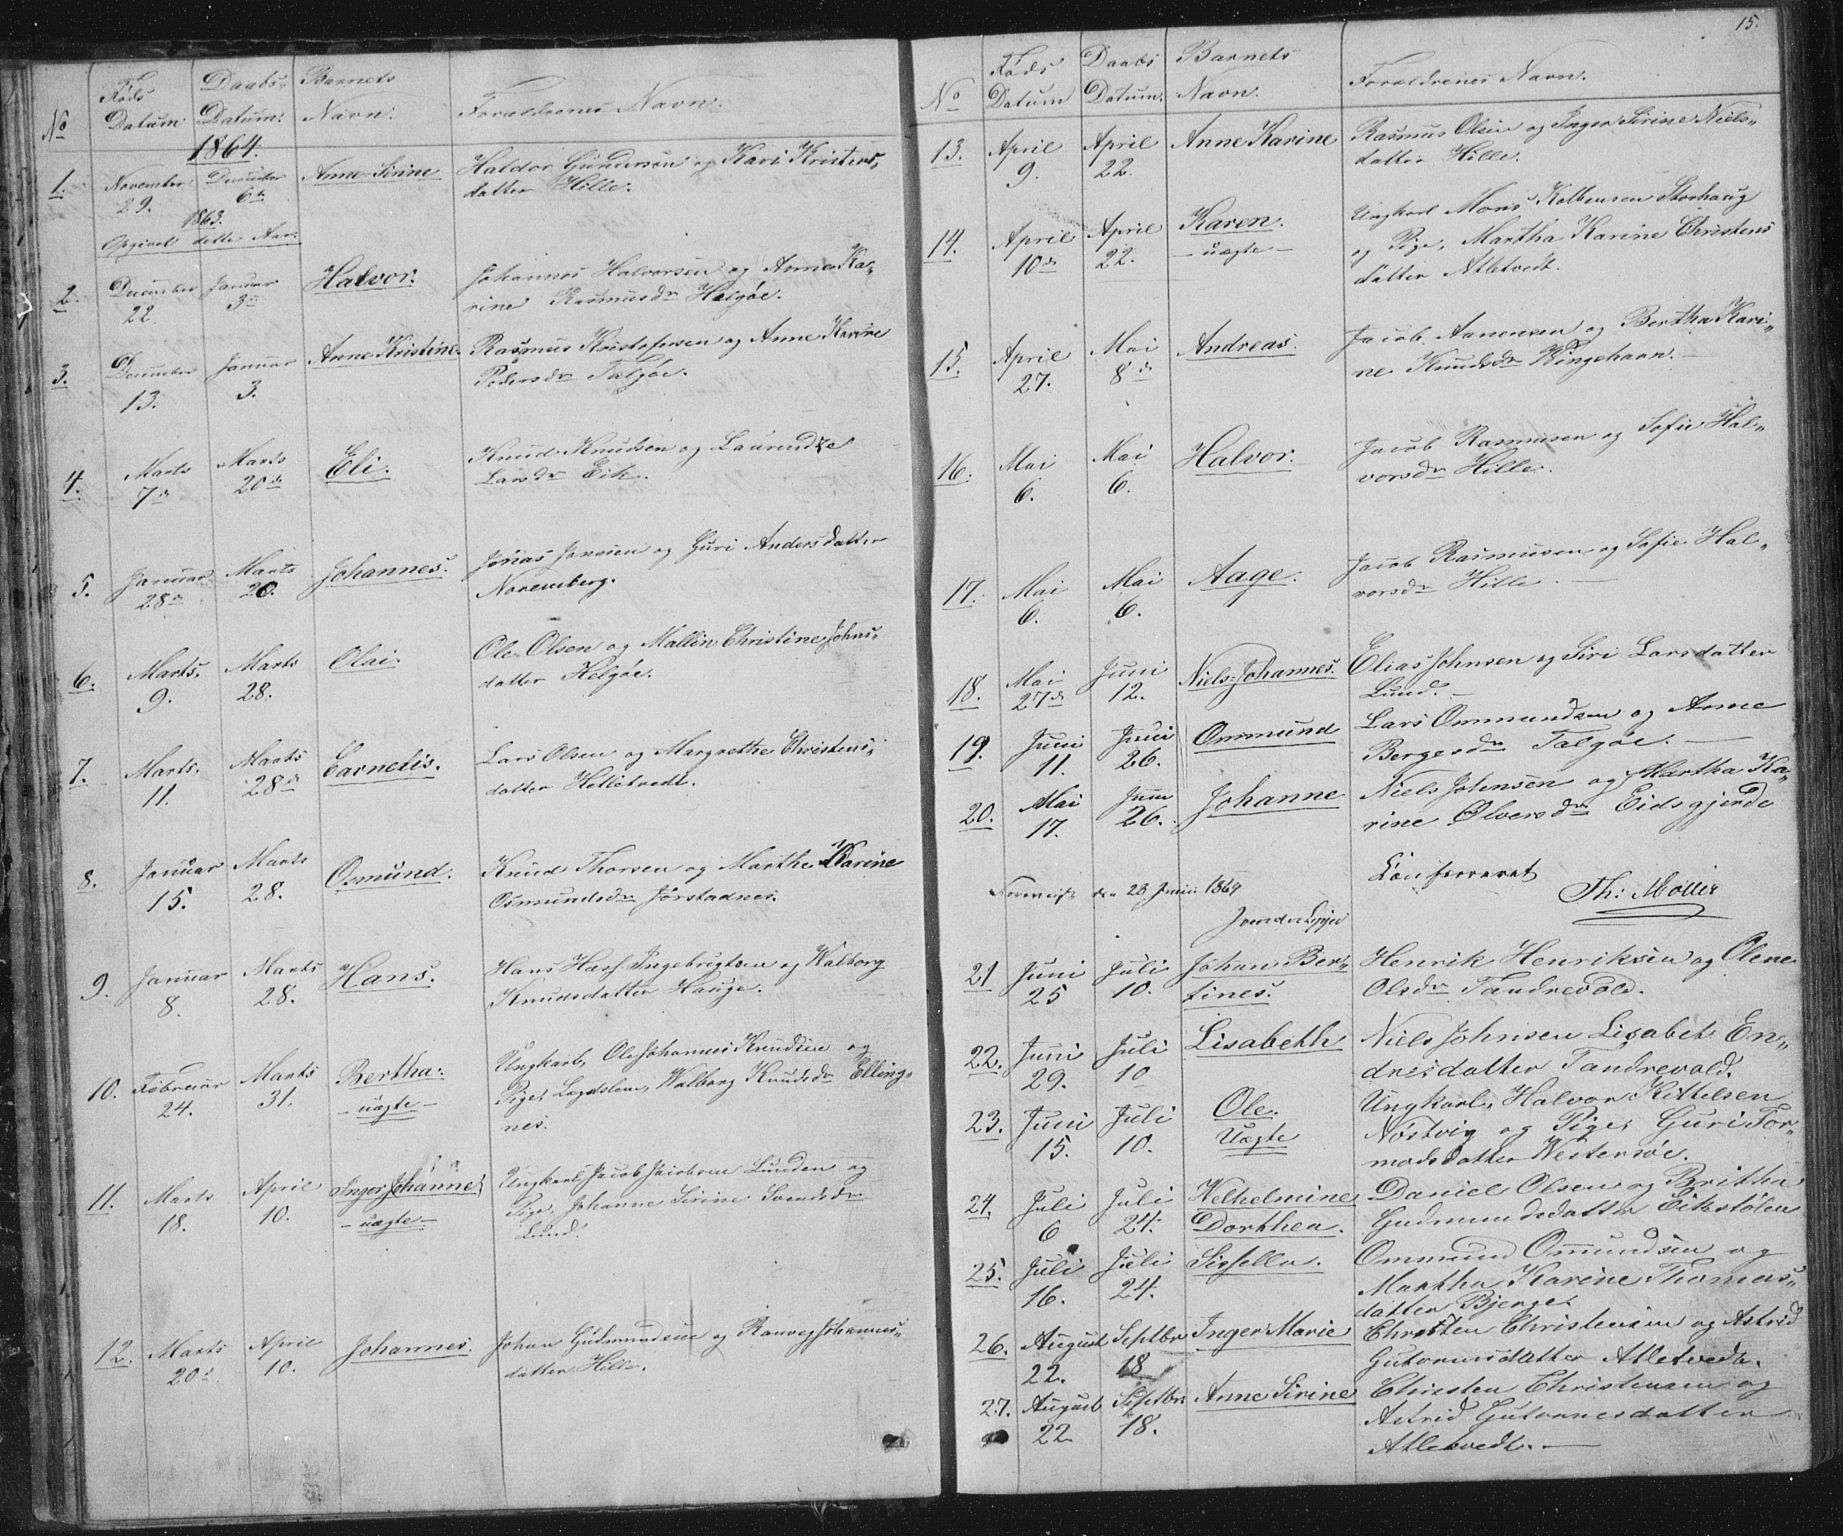 No
Føds Datum
Daabs Datum.
Barnets Navn.
Forældrenes Navn.
1864.
1. November 29. December 6te Anne Sirine Haldor Gundersen og Kari Kristens,,
datter Hille.
1863.
Opgivet dette Aar.
2. December 22. Januar 3de Halvor. Johannes Halvorsen og Anne Ka,,
rine Rasmusdr Halgøe.
3. December 13. Januar 3. Anne Kristine. Rasmus Kristofersen og Anne Karine
Pedersdr Talgøe.
4. Marts 7de Marts 20de Eli. Knud Knudsen og
Larsdr Eik.
5. Januar 28de Marts 20. Johannes. Jonas Jonasen og Guri Andersdatter
Noremberg.
6. Marts 9. Marts 28. Olai. Ole Olsen og Mallin Christine Johns,,
datter Helgøe.
7. Marts 11. Marts 28de Cornelis. Lars Olsen og Margrethe Christens,,
datter Helletvedt.
8. Januar 15. Marts 28. Osmund. Knud Thorsen og Marthe Karine
Osmundsdr Jørstadnes.
9. Januar 8. Marts 28. Hans. Hans Ingebrigtsen og Walborg
Knudsdatter Hauge.
10. Februar 24. Marts 31. Bertha. - uægte - Ungkarl, Ole Johannes Knudsen og
Pige, Walborg Knudsdr Elling,,
nes.
11. Marts 18. April 10. Inger Johanne - uægte - Ungkarl Jacob Jacobsen Lunden og
Pige, Johanne Sirine Svendsdr
Lund.
12. Marts 20de April 10. Johannes. Johan Gudmundsen og Ranveg Johannes,,
datter Hille.
15.
No
Føds Datum
Daabs Datum.
Barnets Navn.
Forældrenes Navn.
13. April 9. April 22. Anne Karine Rasmus Olsen og Inger Sirine Niels,,
datter Hille.
14. April 10de April 22. Karen. - uægte - Ungkarl Mons Kolbensen Storhaug
og Pige, Martha Karine Christens
datter Atletvedt.
15. April 27. Mai 8de Andreas. Jacob Aanensen og Bertha Kari,,
ne Knudsdr
16. Mai 6. Mai 6. Halvor. Jacob Rasmusen og Sofie Hal,,
vorsdr Hille.
17. Mai 6. Mai 6. Aage. Jacob Rasmusen og Sofie Hal,,
vorsdr Hille.
18. Mai 27de Juni 12. Niels Johannes. Elias Johnsen og Siri Larsdatter
Lund.
19. Juni 11. Juni 26. Ommund Lars Ommundsen og Anne
Bergesdr Talgøe.
20. Mai 17. Juni 26. Johanne Niels Johnsen og Martha Ka,,
rine Ølversdr Eidsgjerde
Konfereret
Th: Møller
den 23 Juni 1864
21 Juni 25 Juli 10. Johan Ber,,
tines. Henrik Henriksen og Olene
Olsdr Tandrevold.
22. Juni 29. Juli 10 Lisabeth Niels Johnsen Lisabet En,,
dresdatter Tandrevold.
23. Juni 15. Juli 10. Ole. Uægte Ungkarl, Halvor Kittelsen
Nøstvig og Pige, Guri Tor,,
modsdatter Vestersøe.
24. Juli 6 Juli 24. Welhelmine Dorthea. Daniel Olsen og Britha
Gudmundsdatter Eikstølen
25. Juli 16. Juli 24. Sissella. Ommund Ommundsen og
Martha Karine Thomas,,
datter Bjerge.
26. August 22. Septbr 18 Inger Marie Christen Christensen og Astrid
Gutormsdatter Atletvedt.
27. August 22. Septbr 18. Anne Sirine Christen Christensen og
Astrid Gutormsdatter
Atletvedt.